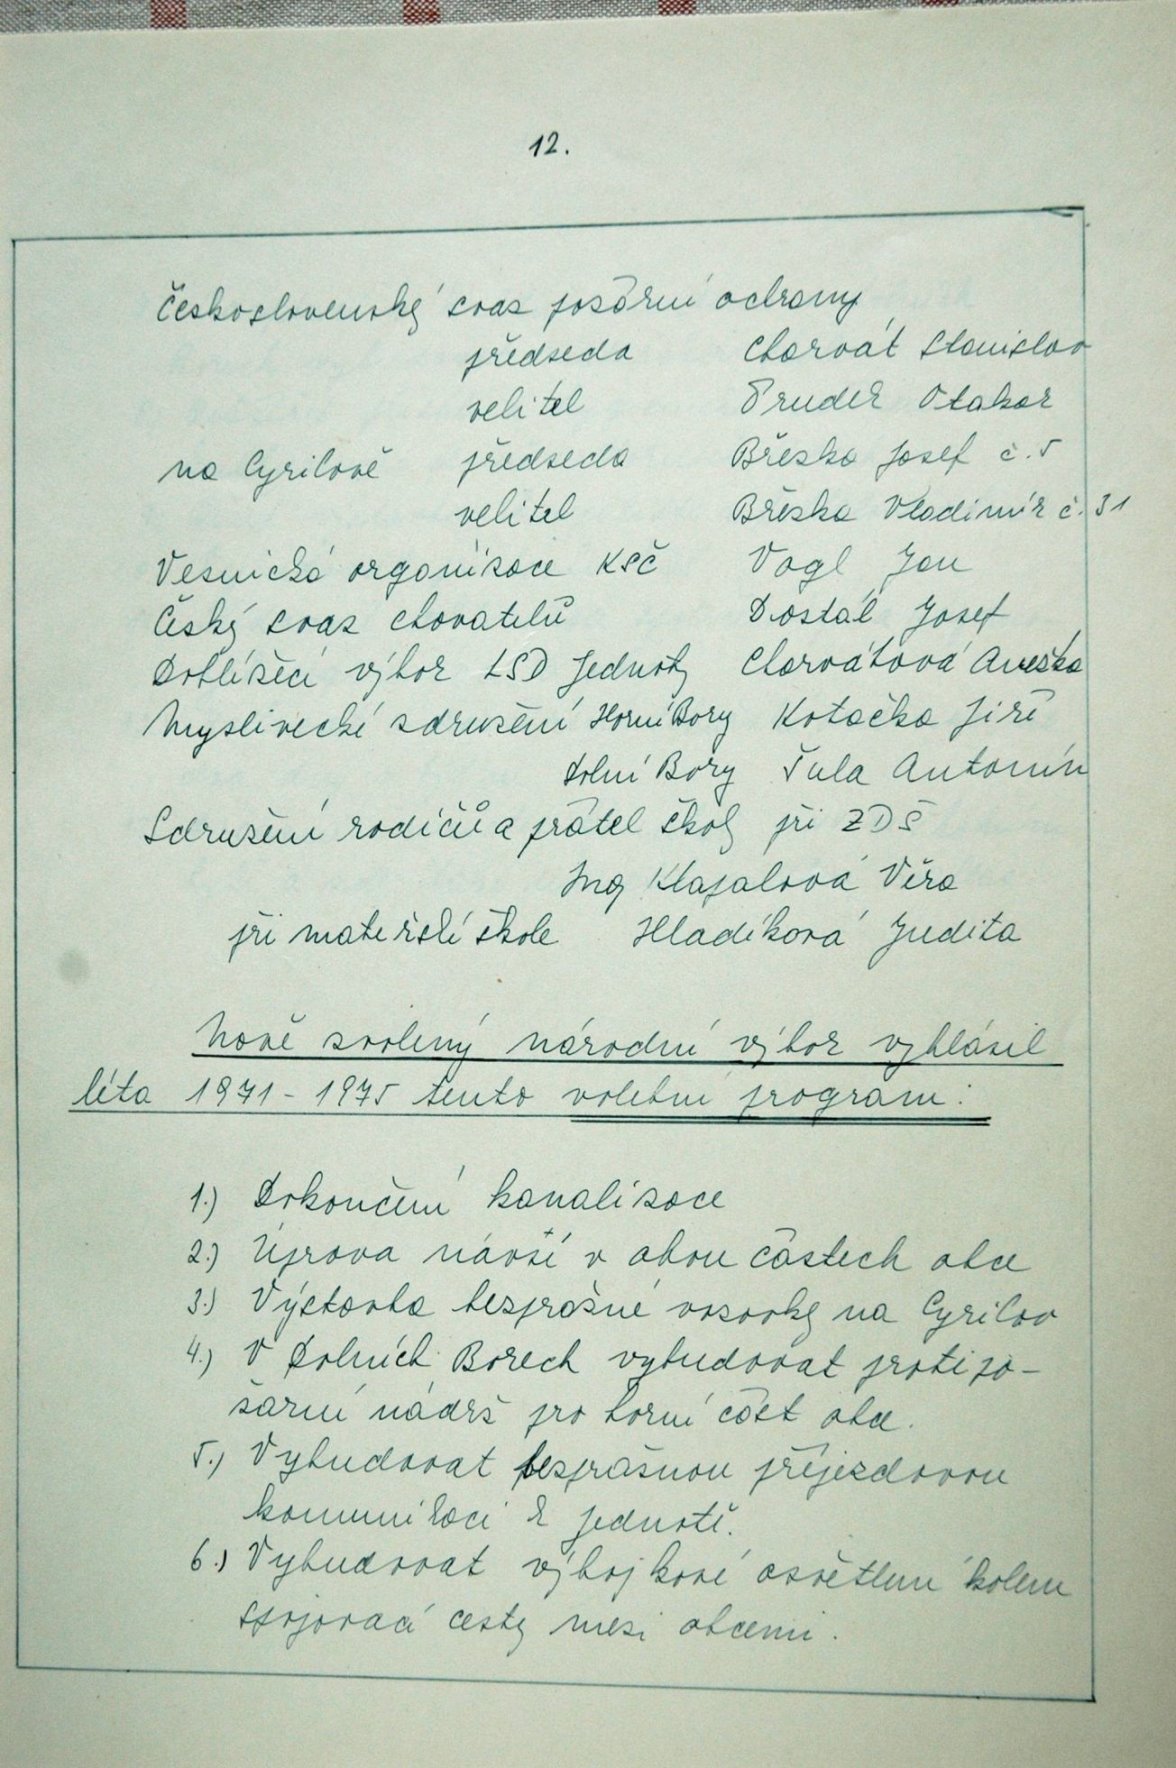 12.
Československý svaz požární ochrany
předseda Chorvát Stanislav
velitel Prudek Otakar
na Cyrilově předseda Břeska Josef č. 5
velitel Břeska Vladimír č. 31
Vesnická organisace KSČ Vogl Jan
Český svaz chovatelů Dostál Josef
Dohlížecí výbor LSD Jednoty Chorvátová Anežka
Myslivecké sdružení Horní Bory Kotačka Jiří
Dolní Bory Šula Antonín
Sdružení rodičů a přátel školy při ZDŠ
Ing Klapalová Věra
při mateřské škole Hladíková Judita
Nově zvolený národní výbor vyhlásil
léta 1971 - 1975 tento volební program:
1.) Dokončení kanalisace
2.) Úprava návsí v obou částech obce
3.) Výstavba bezprašné vozovky na Cyrilov
4.) V Dolních Borech vybudovat protipo-
žární nádrž pro horní část obce.
5.) Vybudovat bezprašnou příjezdovou
komunikaci k Jednotě.
6.) Vybudovat výbojkové osvětlení kolem
spojovací cesty mezi obcemi.